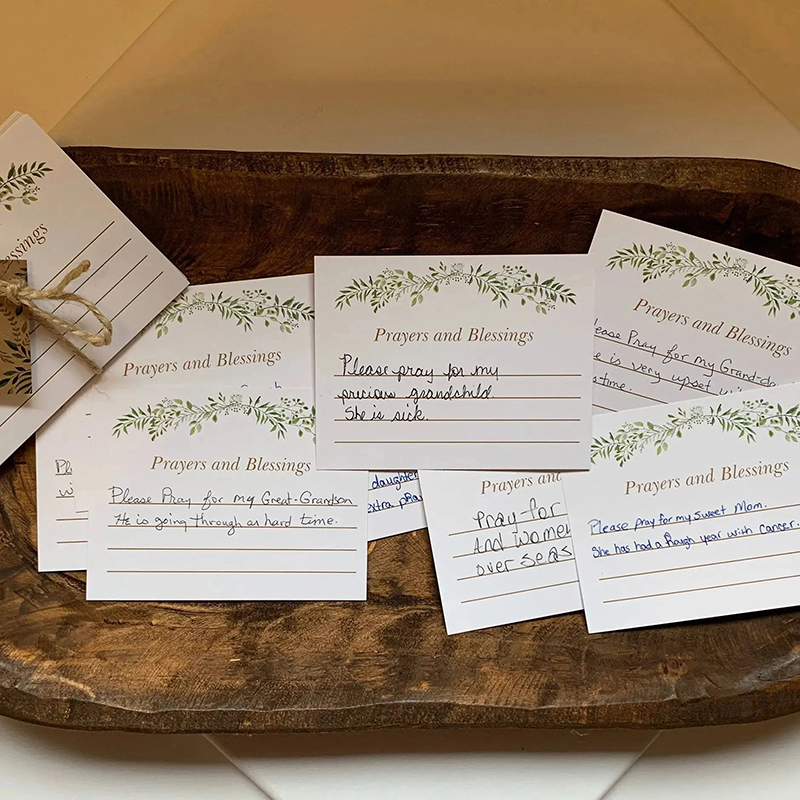 essings
Prayers and Blessings
Prayers and Blessings
Please pray for my
precious grandchild.
She is sick.
Prayers and Blessings
ease Pray for my Grand-da
e is very upset wi
time.
Pl
wi
Prayers and Blessings
Please Pray for my Great-Grandson
He is going through as hard time.
daughter
xtra pra
Prayers an
Pray for
And Women
over seas
Prayers and Blessings
Please pray for my sweet Mom.
She has had a Rough year with Cancer.